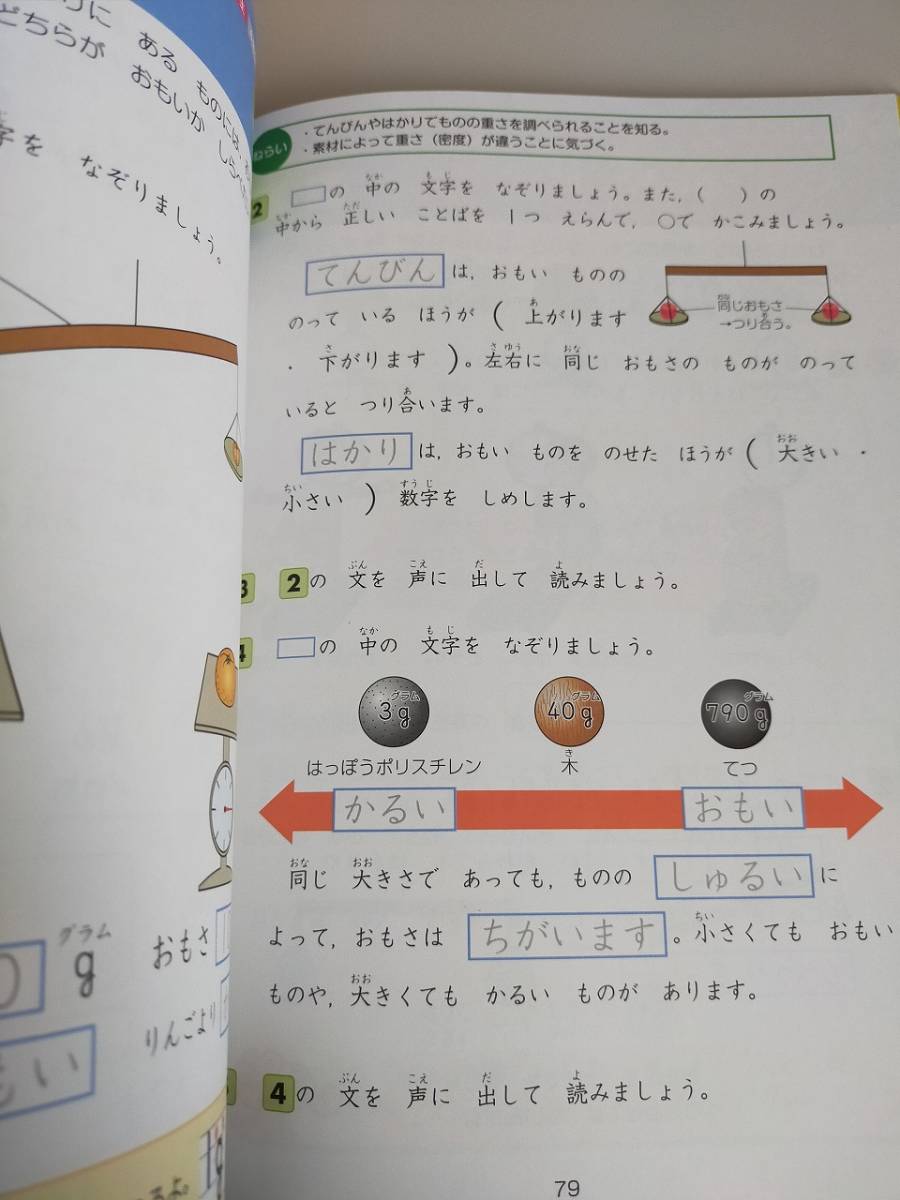 りに ある ものには、
どちらが おもいか
しらべ
字を なぞりましょう。
グラム
g
おもさ
りんごより
もい
るよ。
ねらい
・てんびんやはかりでものの重さを調べられることを知る。
・素材によって重さ（密度）が違うことに気づく。
2 □の 中の 文字を なぞりましょう。また，( )の
中から 正しい ことばを 1つ えらんで，○で かこみましょう。
てんびん は，おもい ものの
のって いる ほうが ( 上がります
・下がります )。左右に 同じ おもさの ものが のって
いると つり合います。
同じおもさ
→つり合う。
はかり は，おもい ものを のせた ほうが ( 大きい ・
小さい ) 数字を しめします。
3 2の 文を 声に 出して 読みましょう。
4 □の 中の 文字を なぞりましょう。
3g 40g 790g
はっぽうポリスチレン 木 てつ
かるい おもい
同じ 大きさで あっても，ものの しゅるい に
よって，おもさは ちがいます 。小さくても おもい
ものや，大きくても かるい ものが あります。
4の 文を 声に 出して 読みましょう。
79